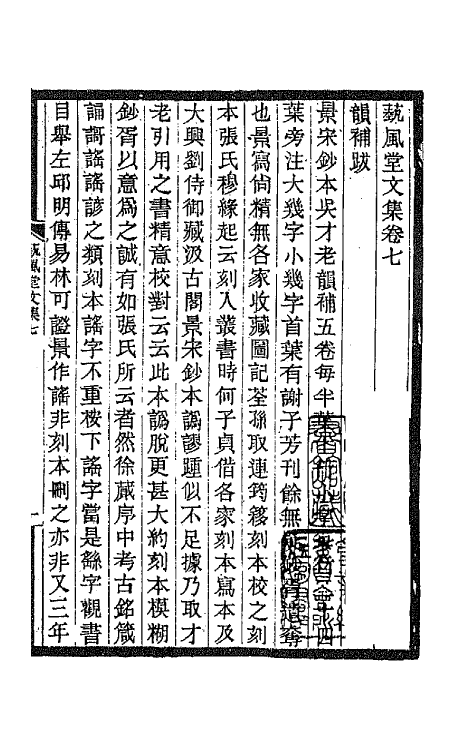 藝風堂文集卷七
韻補跋
景宋鈔本吳才老韻補五卷每半葉 四
葉旁注大幾字小幾字首葉有謝子芳刊餘無
也景寫尙精無各家收藏圖記荃孫取連筠簃刻本校之刻
本張氏穆緣起云刻入叢書時何子貞借各家刻本寫本及
大興劉侍御藏汲古閣景宋鈔本譌謬踵似不足據乃取才
老引用之書精意校對云云此本譌脫更甚大約刻本模糊
鈔胥以意爲之誠有如張氏所云者然徐蕆序中考古銘箴
誦謌謠謠諺之類刻本謠字不重桉下謠字當是繇字觀書
目舉左邱明傳易林可證景作謠非刻本刪之亦非又三年
藝風堂文集七
一